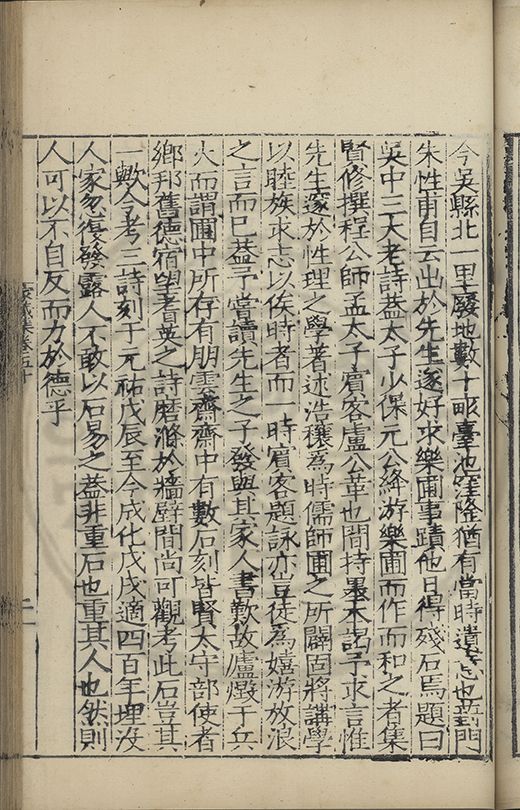 今吳縣北一里廢地數十畝臺池窪隆猶有當時遺意也葑門
朱性甫自云出於先生遂好求樂圃事蹟他日得殘石焉題曰
吳中三大老詩葢太子少保元公絳游樂圃而作而和之者集
賢修撰程公師孟太子賓客盧公革也間持墨本謁予求言惟
先生邃於性理之學著述浩穰為時儒師圃之所闢固將講學
以睦族求志以俟時者而一時賓客題詠亦豈徒為嬉游放浪
之言而巳葢予嘗讀先生之子發與其家人書歎故廬燬于兵
火而謂圃中所存有朋雲齋齋中有數石刻皆賢太守部使者
鄉邦舊德宿望耆英之詩磨滌於牆壁間尚可觀考此石豈其
一歟今考三詩刻于元祐戊辰至今成化戊戌適四百年埋沒
人家忽復發露人不敢以石易之葢非重石也重其人也然則
人可以不自反而力於德乎
藏集卷五十
二